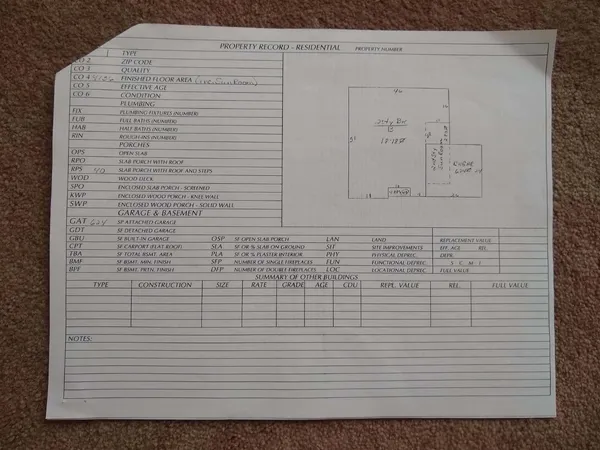 PROPERTY RECORD - RESIDENTIAL PROPERTY NUMBER
TYPE
CO 2 ZIP CODE
CO 3 QUALITY
CO 4 FINISHED FLOOR AREA
CO 5 EFFECTIVE AGE
CO 6 CONDITION
PLUMBING
FIX PLUMBING FIXTURES (NUMBER)
FUB FULL BATHS (NUMBER)
HAB HALF BATHS (NUMBER)
RIN ROUGH INS (NUMBER)
PORCHES
OPS OPEN SLAB
RPO SLAB PORCH WITH ROOF
RPS 40 SLAB PORCH WITH ROOF AND STEPS
WOD WOOD DECK
SPO ENCLOSED SLAB PORCH - SCREENED
KWP ENCLOSED WOOD PORCH - KNEE WALL
SWP ENCLOSED WOOD PORCH - SOLID WALL
GARAGE & BASEMENT
GAT 624 SF ATTACHED GARAGE
GDT SF DETACHED GARAGE
GBU SF BUILT-IN GARAGE OSP SF OPEN SLAB PORCH LAN LAND REPLACEMENT VALUE
CPT SF CARPORT (FLAT ROOF) SLA SF OR % SLAB ON GROUND SIT SITE IMPROVEMENTS EFF. AGE REL.
TBA SF TOTAL BSMT. AREA PLA SF OR % PLASTER INTERIOR PHY PHYSICAL DEPREC. DEPR.
BMF SF BSMT. MIN. FINISH SFP NUMBER OF SINGLE FIREPLACES FUN FUNCTIONAL DEPREC. S C M I
BPF SF BSMT. PRTN. FINISH DFP NUMBER OF DOUBLE FIREPLACES LOC LOCATIONAL DEPREC. FULL VALUE
SUMMARY OF OTHER BUILDINGS
TYPE CONSTRUCTION SIZE RATE GRADE AGE CDU REPL. VALUE REL. FULL VALUE
NOTES: